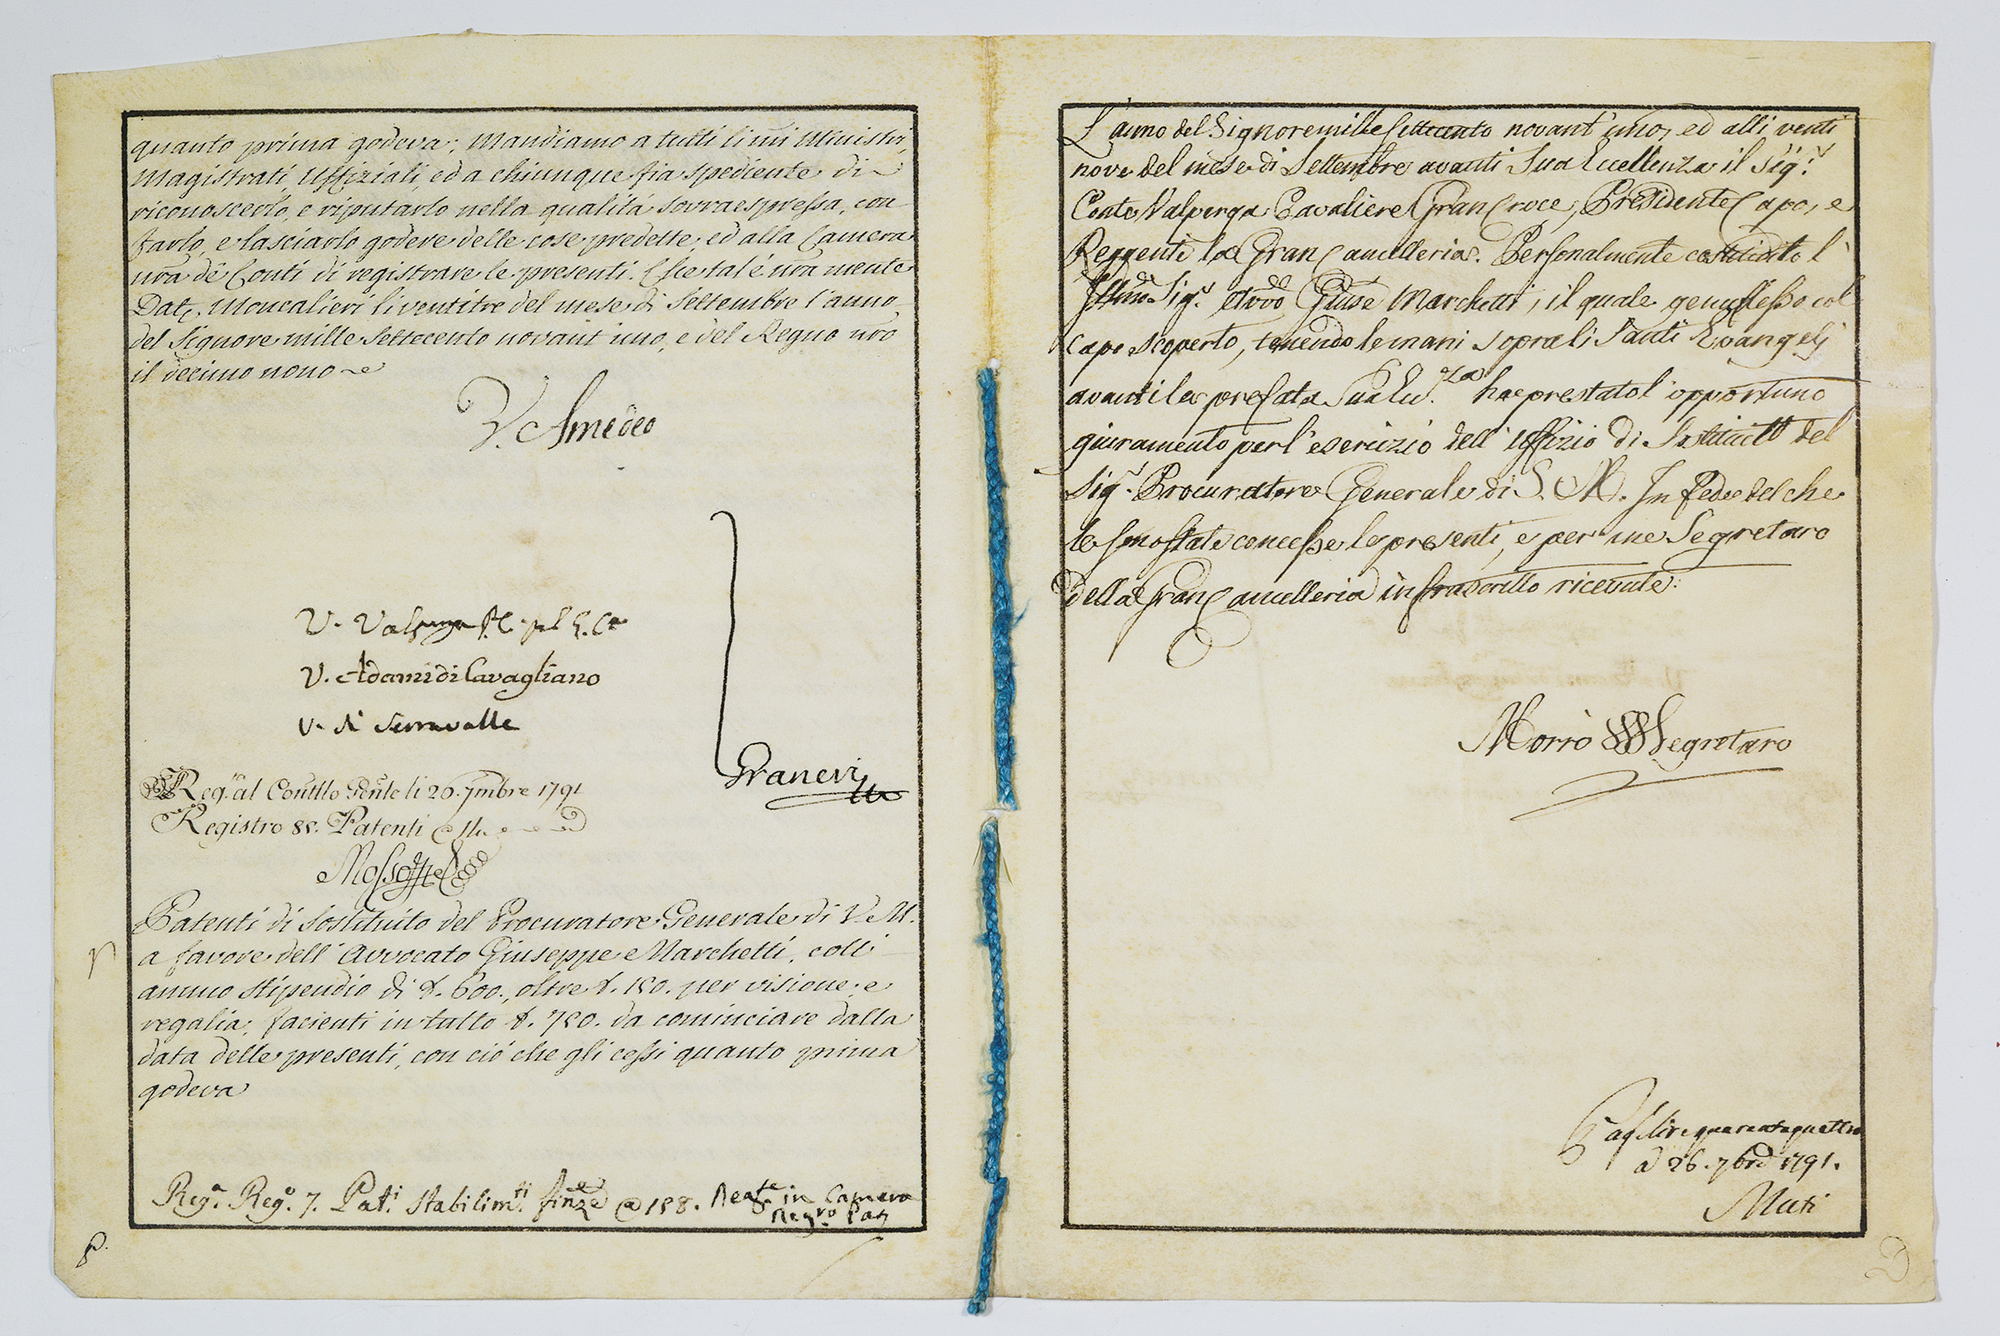 quanto prima godeva; Mandiamo a tutti li nri Ministri,
Magistrati, Uffiziali, ed a chiunque fia spediente di
riconoscerlo, e riputarlo nella qualità sovraespressa, con
farlo, e lasciarlo godere delle cose predette, ed alla Camera
nra de Conti di registrare le presenti. Che tal'è nra mente
Dat. Moncalieri li ventitre del mese di Settembre l'anno
del Signore mille settecento novant'uno, e del Regno nro
il decimo nono
V. Amedeo
V. Valperga P.C. pel G. Ca
V. Adami di Cavagliano
V. di Serravalle
Graneri
Reg. al Contllo Gnle li 26. 7mbre 1791
Registro 85. Patenti
Patenti di Sostituito del Procuratore Generale di V. M.
a favore dell'Avvocato Giuseppe Marchetti, coll'
annuo stipendio di £. 600., oltre £. 150. per visione, e
regalia, facienti in tutto £. 750. da cominciare dalla
data delle presenti, con ciò che gli cessi quanto prima
godeva
Reg.a Reg.o 7. Pat.i Stabilim.ti finze @ 158. Reg.te in Camera
Reg.ro Pat
P.
L'anno del Signore mille settecento novant'uno, ed alli venti
nove del mese di Settembre avanti Sua Eccellenza il Sig.r
Conte Valperga Cavaliere Gran Croce, Presidente Capo, e
Reggente la Gran Cancelleria. Personalmente costituito l'
Illmo Sig.r Avvo Giuse Marchetti, il quale genuflesso col
capo scoperto, tenendo le mani sopra li Santi Evangelj
avanti la prefata Sua Ecc.za ha prestato l'opportuno
giuramento per l'esercizio dell'Uffizio di Sostituito del
Sig.r Procuratore Generale di S. M. In fede del che
le sono state concesse le presenti, e per me Segretaro
della Gran Cancelleria infrascritto ricevute.
Morrò Segretaro
Pag. lire quarantaquattro
a 26. 7bre 1791.
Muti